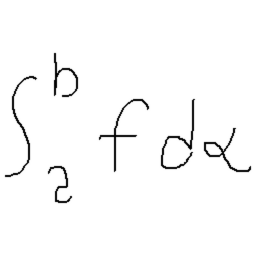 ∫₂ᵇ f dα